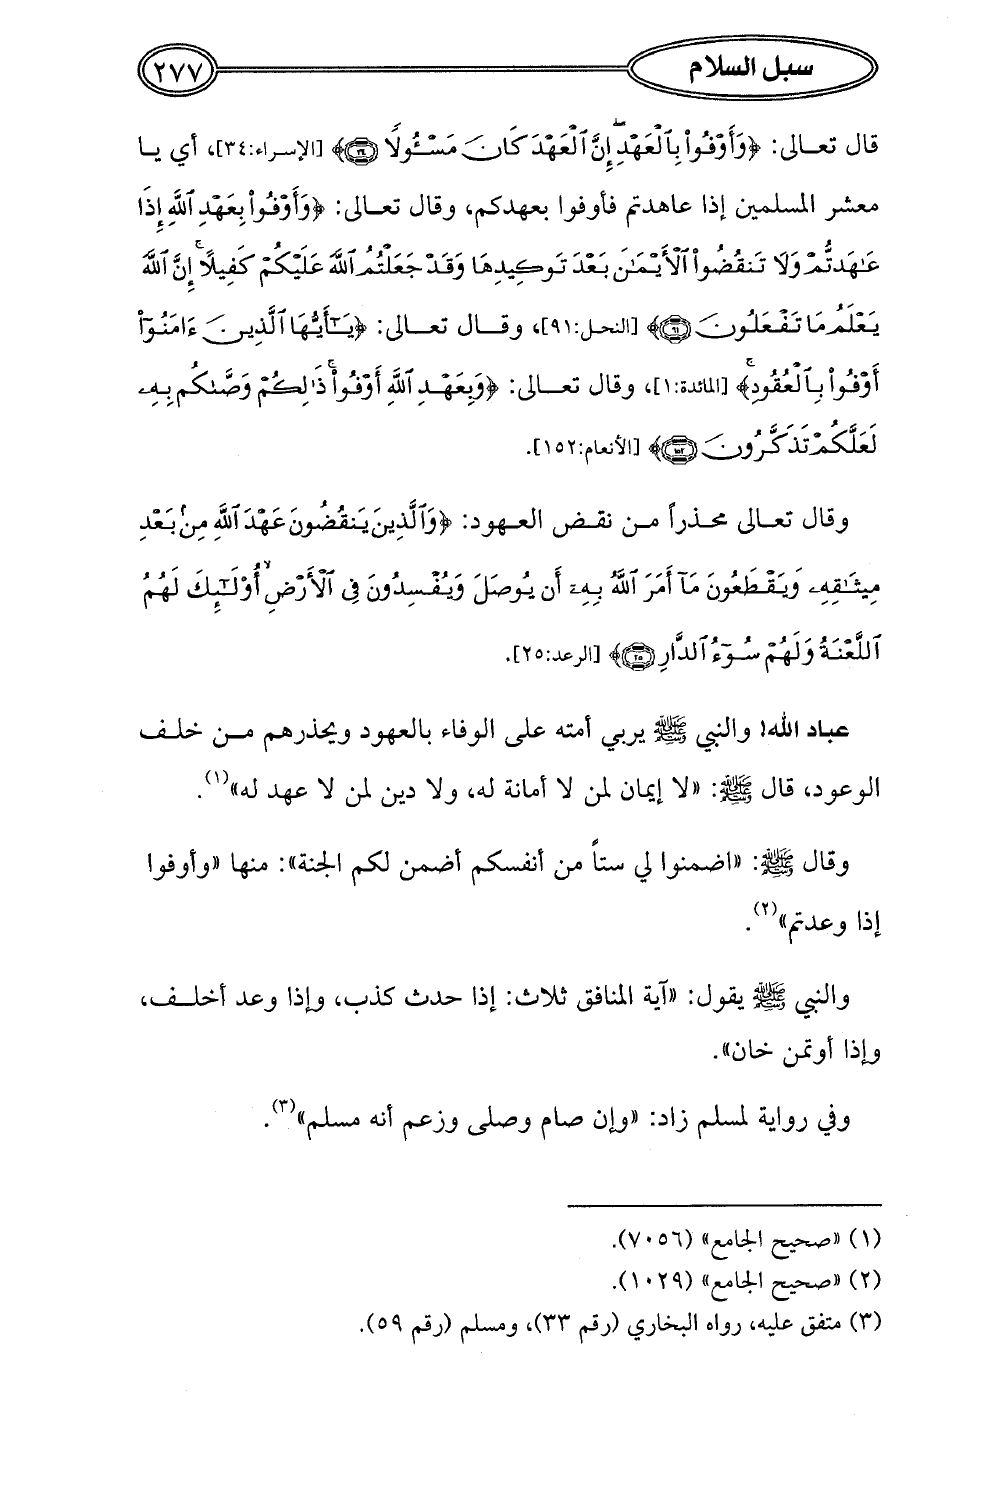 سبل السلام ٢٧٧
قال تعالى: ﴿وَأَوْفُواْ بِٱلْعَهْدِۖ إِنَّ ٱلْعَهْدَ كَانَ مَسْـُٔولًا ٣٤﴾ [الإسراء:٣٤]، أي يا
معشر المسلمين إذا عاهدتم فأوفوا بعهدكم، وقال تعالى: ﴿وَأَوْفُواْ بِعَهْدِ ٱللَّهِ إِذَا
عَٰهَدتُّمْ وَلَا تَنقُضُواْ ٱلْأَيْمَٰنَ بَعْدَ تَوْكِيدِهَا وَقَدْ جَعَلْتُمُ ٱللَّهَ عَلَيْكُمْ كَفِيلًاۚ إِنَّ ٱللَّهَ
يَعْلَمُ مَا تَفْعَلُونَ ٩١﴾ [النحل:٩١]، وقال تعالى: ﴿يَٰٓأَيُّهَا ٱلَّذِينَ ءَامَنُوٓاْ
أَوْفُواْ بِٱلْعُقُودِۚ﴾ [المائدة:١]، وقال تعالى: ﴿وَبِعَهْدِ ٱللَّهِ أَوْفُواْۚ ذَٰلِكُمْ وَصَّىٰكُم بِهِۦ
لَعَلَّكُمْ تَذَكَّرُونَ ١٥٢﴾ [الأنعام:١٥٢].
وقال تعالى محذراً من نقض العهود: ﴿وَٱلَّذِينَ يَنقُضُونَ عَهْدَ ٱللَّهِ مِنۢ بَعْدِ
مِيثَٰقِهِۦ وَيَقْطَعُونَ مَآ أَمَرَ ٱللَّهُ بِهِۦٓ أَن يُوصَلَ وَيُفْسِدُونَ فِى ٱلْأَرْضِۙ أُوْلَٰٓئِكَ لَهُمُ
ٱللَّعْنَةُ وَلَهُمْ سُوٓءُ ٱلدَّارِ ٢٥﴾ [الرعد:٢٥].
عباد الله! والنبي ﷺ يربي أمته على الوفاء بالعهود ويحذرهم من خلف
الوعود، قال ﷺ: «لا إيمان لمن لا أمانة له، ولا دين لمن لا عهد له»(١).
وقال ﷺ: «اضمنوا لي ستاً من أنفسكم أضمن لكم الجنة»: منها «وأوفوا
إذا وعدتم»(٢).
والنبي ﷺ يقول: «آية المنافق ثلاث: إذا حدث كذب، وإذا وعد أخلف،
وإذا أوتمن خان».
وفي رواية لمسلم زاد: «وإن صام وصلى وزعم أنه مسلم»(٣).
(١) «صحيح الجامع» (٧٠٥٦).
(٢) «صحيح الجامع» (١٠٢٩).
(٣) متفق عليه، رواه البخاري (رقم ٣٣)، ومسلم (رقم ٥٩).